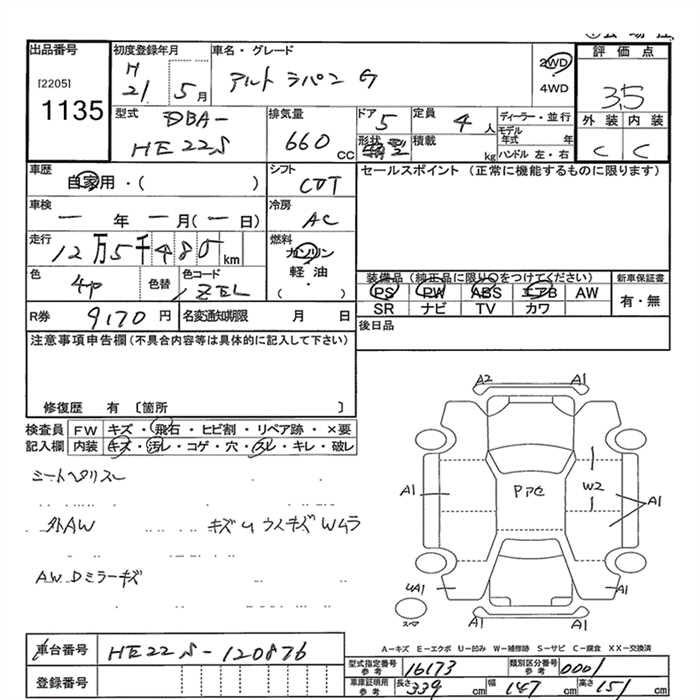 出品番号
[2205]
1135
初度登録年月
H 21 5月
車名・グレード
アルト ラパン G
2WD
4WD
評価点
3.5
外装 内装
C C
型式
DBA-
HE22S
排気量
660 CC
ドア
5
形状
定員
4人
積載
kg
ディーラー・並行
モデル年式 年
ハンドル 左・右
車歴
自家用・( )
シフト
CVT
セールスポイント (正常に機能するものに限ります)
車検
— 年 — 月(— 日)
冷房
AC
走行
12万5千485km
燃料
ガソリン
軽油
( ・ )
色
色替
色コード
ZEL
装備品(純正品に限り○をつけてください)
PS PW ABS エアB AW
SR ナビ TV カワ
新車保証書
有・無
R券 9170円
名変通知期限 月 日
後日品
注意事項申告欄(不具合内容等は具体的に記入して下さい)
修復歴 有 〔箇所 〕
検査員記入欄
FW キズ・飛石・ヒビ割・リペア跡・×要
内装 キズ・汚レ・コゲ・穴・スレ・キレ・破レ
シートヘタリスレ
外AW キズU ウスキズWムラ
AW Dミラーキズ
A2 A1
A1 W2 A1
A1 A1
スペア
A1
A-キズ E-エクボ U-凹み W-補修跡 S-サビ C-腐食 XX-交換済
車台番号 HE22S-120876
登録番号
型式指定番号 参考 16173
類別区分番号 参考 0001
車庫証明用 参考 長さ 339 cm 幅 147 cm 高さ 151 cm